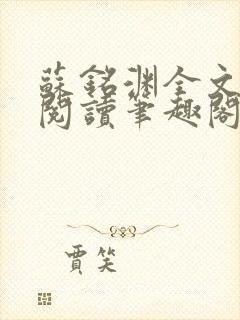 蘇銘淵全文
閱讀筆趣閣
賈笑